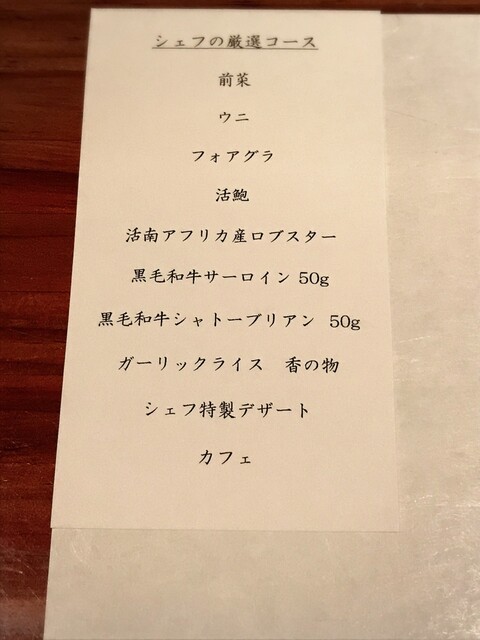 シェフの厳選コース
前菜
ウニ
フォアグラ
活鮑
活南アフリカ産ロブスター
黒毛和牛サーロイン 50g
黒毛和牛シャトーブリアン 50g
ガーリックライス　香の物
シェフ特製デザート
カフェ